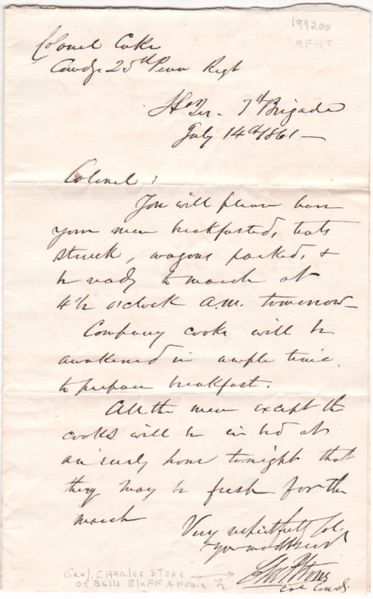 199200
MF-17
Colonel Cake
Comdg 25th Penn Regt
Hd Qrs. 7th Brigade
July 14th 1861—
Colonel:
You will please have
your men breakfasted, tents
struck, wagons packed, &
be ready to march at
4½ o'clock A.M. tomorrow—
Company cooks will be
awakened in ample time
to prepare breakfast.
All the men except the
cooks will be in bed at
an early hour tonight that
they may be fresh for the
march
Very respectfully Col
Your
Chas P Stone
Col Comdg
Gen. Charles Stone
of Balls Bluff Affair